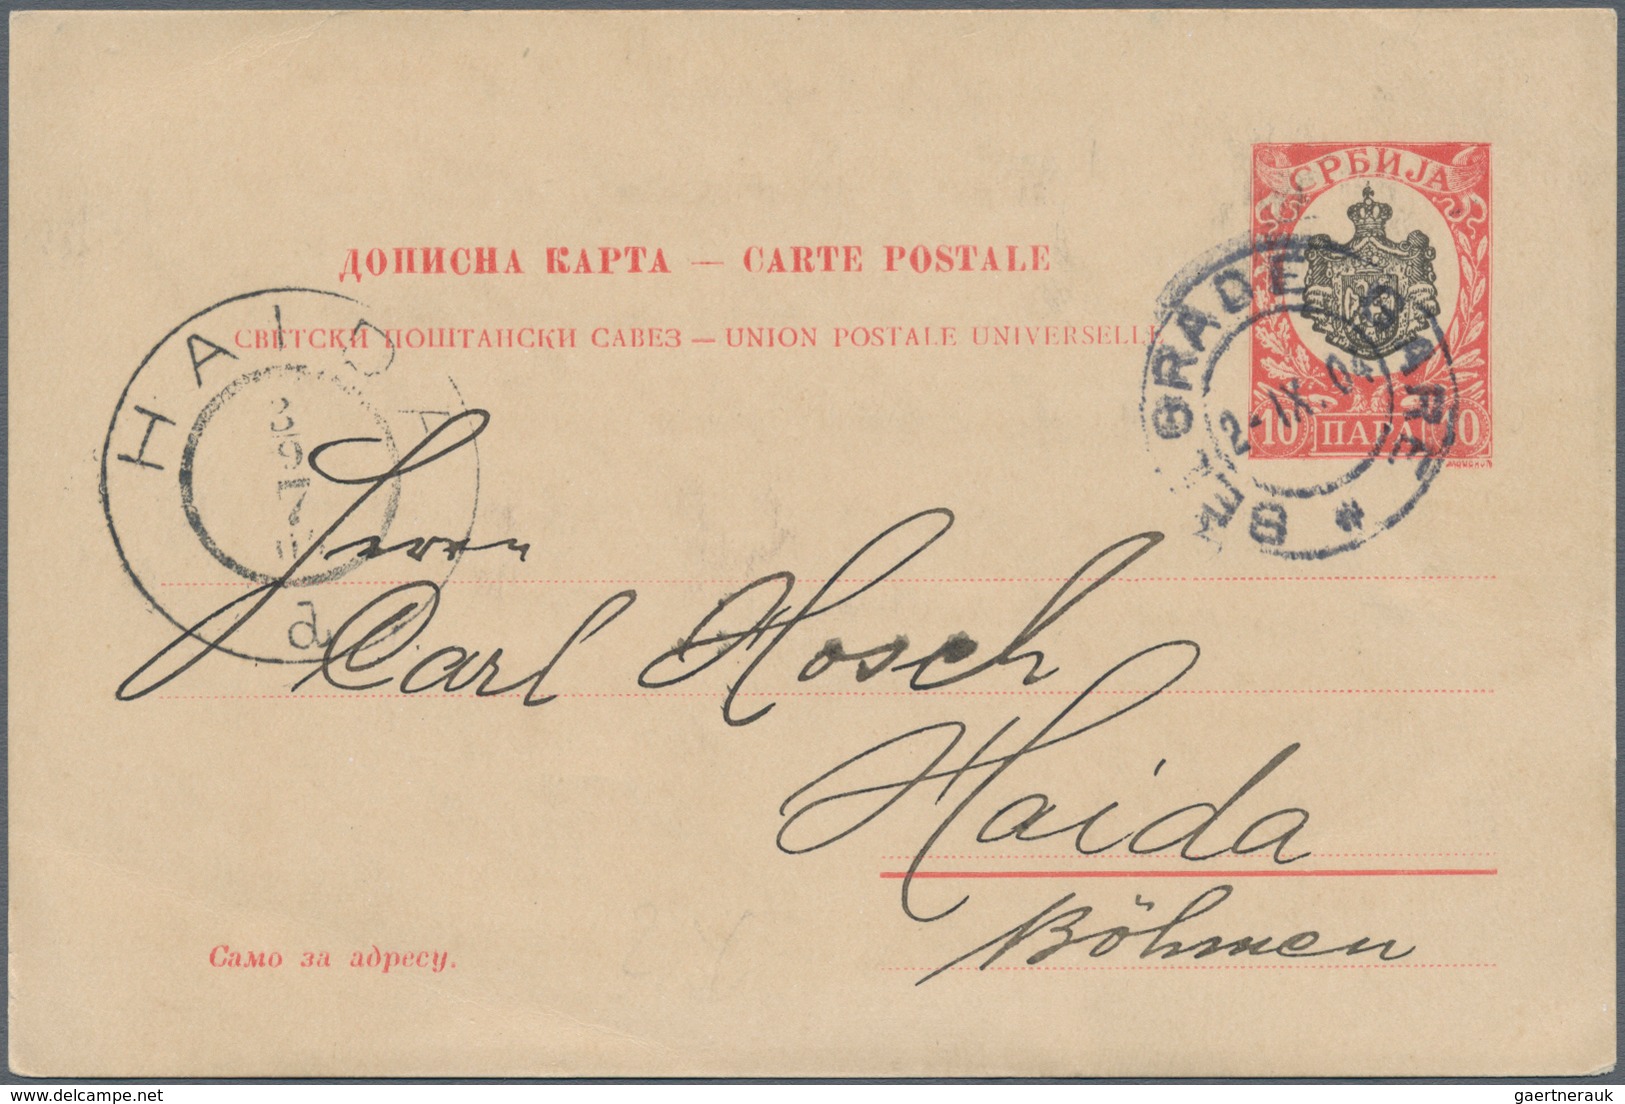 СРБИЈА
ДОПИСНА КАРТА — CARTE POSTALE
СВЕТСКИ ПОШТАНСКИ САВЕЗ — UNION POSTALE UNIVERSELLE
BELGRADE GARE *
2-IX.04
10 ПАРА 10
HAIDA
3 9
7
a
Herrn
Carl Hosch
Haida
Böhmen
Само за адресу.
gaertnerauk